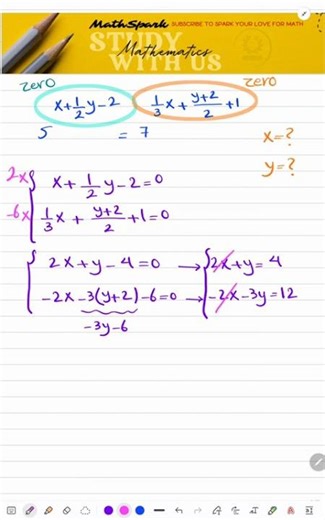 MathSpark SUBSCRIBE TO SPARK YOUR LOVE FOR MATH
STUDY
Mathematics
WITH US
zero zero
x+1/2y-2 1/3x+y+2/2+1
5 = 7
x=?
y=?
2x { x+1/2y-2=0
-6x 1/3x+y+2/2+1=0
{ 2x+y-4=0 → { 2x+y=4
-2x-3(y+2)-6=0 → -2x-3y=12
-3y-6